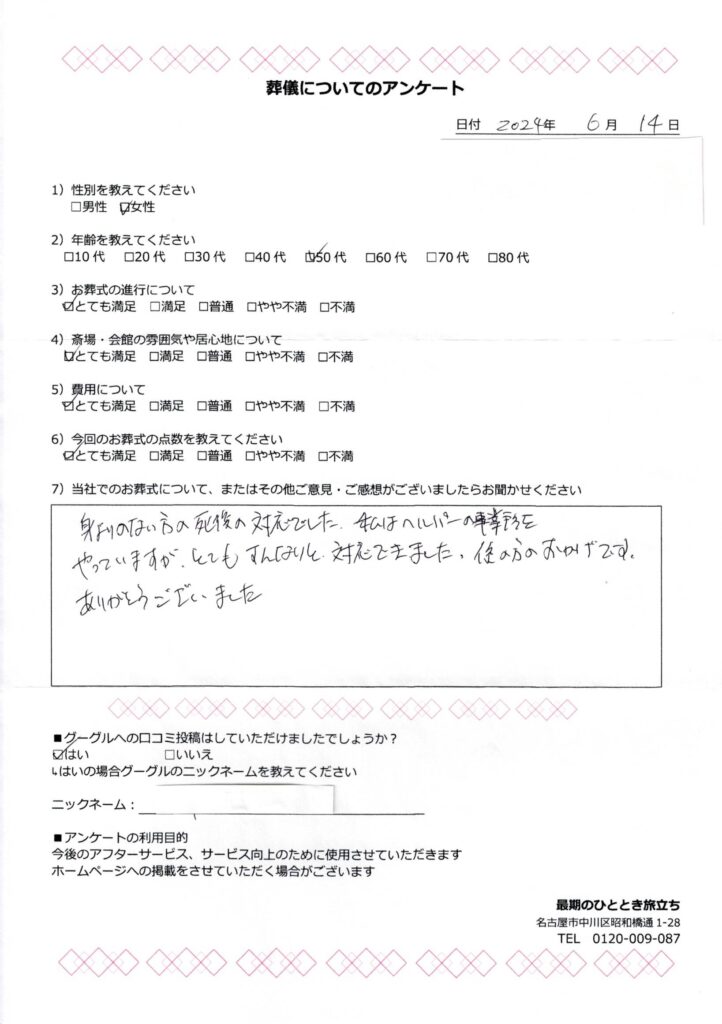 葬儀についてのアンケート
日付 2024年 6月 14日
1）性別を教えてください
□男性 ☑女性
2）年齢を教えてください
□10代 □20代 □30代 □40代 ☑50代 □60代 □70代 □80代
3）お葬式の進行について
☑とても満足 □満足 □普通 □やや不満 □不満
4）斎場・会館の雰囲気や居心地について
☑とても満足 □満足 □普通 □やや不満 □不満
5）費用について
☑とても満足 □満足 □普通 □やや不満 □不満
6）今回のお葬式の点数を教えてください
☑とても満足 □満足 □普通 □やや不満 □不満
7）当社でのお葬式について、またはその他ご意見・ご感想がございましたらお聞かせください
身よりのない方の死後の対応でした。私はヘルパーの事業所を
やっていますが、とてもすんなりと対応できました。 の方のおかげです。
ありがとうございました
■グーグルへの口コミ投稿はしていただけましたでしょうか？
☑はい □いいえ
↳はいの場合グーグルのニックネームを教えてください
ニックネーム：
■アンケートの利用目的
今後のアフターサービス、サービス向上のために使用させていただきます
ホームページへの掲載をさせていただく場合がございます
最期のひととき旅立ち
名古屋市中川区昭和橋通1-28
TEL 0120-009-087